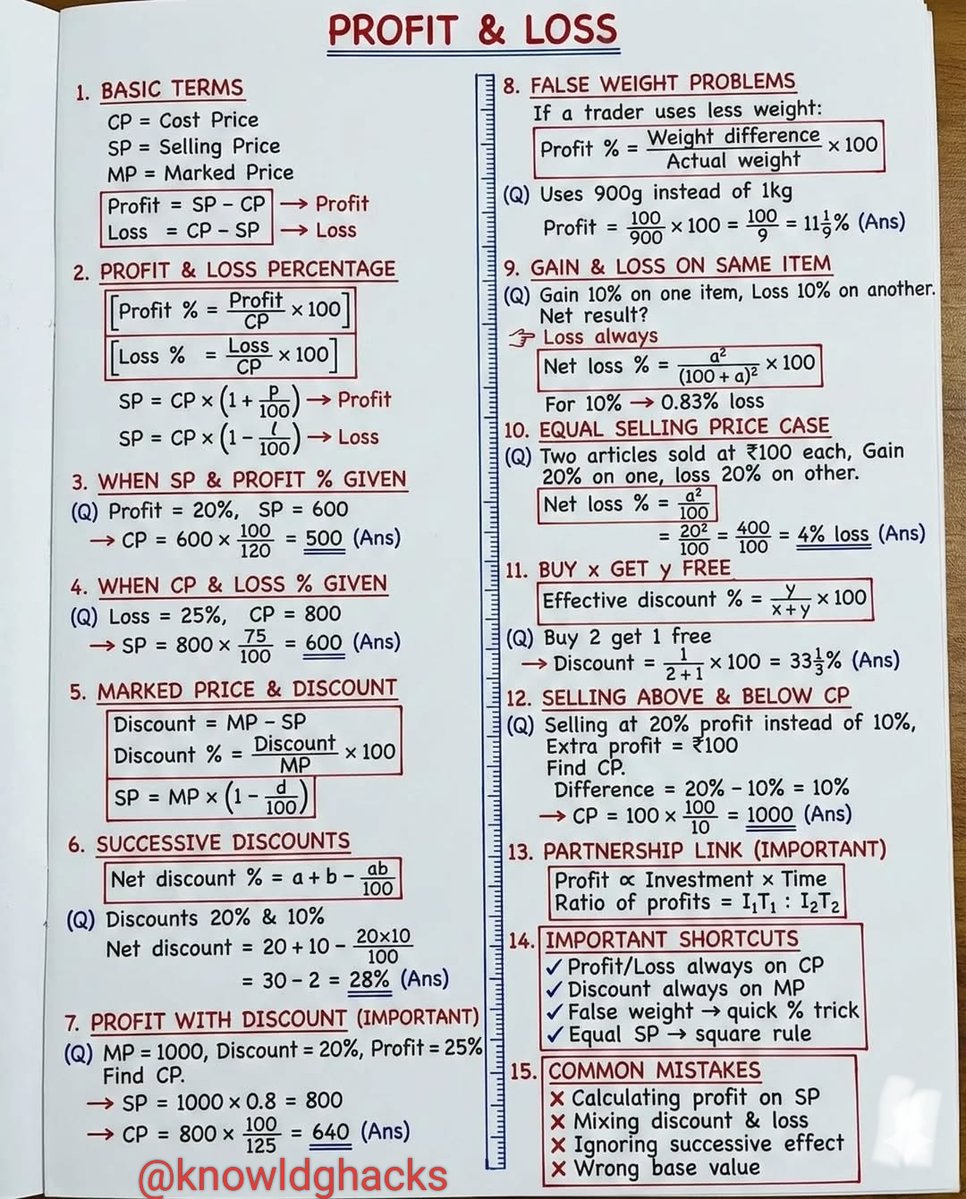 PROFIT & LOSS
1. BASIC TERMS
CP = Cost Price
SP = Selling Price
MP = Marked Price
Profit = SP – CP → Profit
Loss = CP – SP → Loss
2. PROFIT & LOSS PERCENTAGE
[Profit % = Profit/CP × 100]
[Loss % = Loss/CP × 100]
SP = CP × (1 + P/100) → Profit
SP = CP × (1 – l/100) → Loss
3. WHEN SP & PROFIT % GIVEN
(Q) Profit = 20%, SP = 600
→ CP = 600 × 100/120 = 500 (Ans)
4. WHEN CP & LOSS % GIVEN
(Q) Loss = 25%, CP = 800
→ SP = 800 × 75/100 = 600 (Ans)
5. MARKED PRICE & DISCOUNT
Discount = MP – SP
Discount % = Discount/MP × 100
SP = MP × (1 – d/100)
6. SUCCESSIVE DISCOUNTS
Net discount % = a + b – ab/100
(Q) Discounts 20% & 10%
Net discount = 20 + 10 – 20×10/100
= 30 – 2 = 28% (Ans)
7. PROFIT WITH DISCOUNT (IMPORTANT)
(Q) MP = 1000, Discount = 20%, Profit = 25%
Find CP.
→ SP = 1000 × 0.8 = 800
→ CP = 800 × 100/125 = 640 (Ans)
8. FALSE WEIGHT PROBLEMS
If a trader uses less weight:
Profit % = Weight difference/Actual weight × 100
(Q) Uses 900g instead of 1kg
Profit = 100/900 × 100 = 100/9 = 11 1/9% (Ans)
9. GAIN & LOSS ON SAME ITEM
(Q) Gain 10% on one item, Loss 10% on another.
Net result?
☞ Loss always
Net loss % = a²/(100 + a)² × 100
For 10% → 0.83% loss
10. EQUAL SELLING PRICE CASE
(Q) Two articles sold at ₹100 each, Gain
20% on one, loss 20% on other.
Net loss % = a²/100
= 20²/100 = 400/100 = 4% loss (Ans)
11. BUY x GET y FREE
Effective discount % = y/x+y × 100
(Q) Buy 2 get 1 free
→ Discount = 1/2+1 × 100 = 33 1/3% (Ans)
12. SELLING ABOVE & BELOW CP
(Q) Selling at 20% profit instead of 10%,
Extra profit = ₹100
Find CP.
Difference = 20% – 10% = 10%
→ CP = 100 × 100/10 = 1000 (Ans)
13. PARTNERSHIP LINK (IMPORTANT)
Profit ∝ Investment × Time
Ratio of profits = I₁T₁ : I₂T₂
14. IMPORTANT SHORTCUTS
✓ Profit/Loss always on CP
✓ Discount always on MP
✓ False weight → quick % trick
✓ Equal SP → square rule
15. COMMON MISTAKES
✗ Calculating profit on SP
✗ Mixing discount & loss
✗ Ignoring successive effect
✗ Wrong base value
@knowldghacks